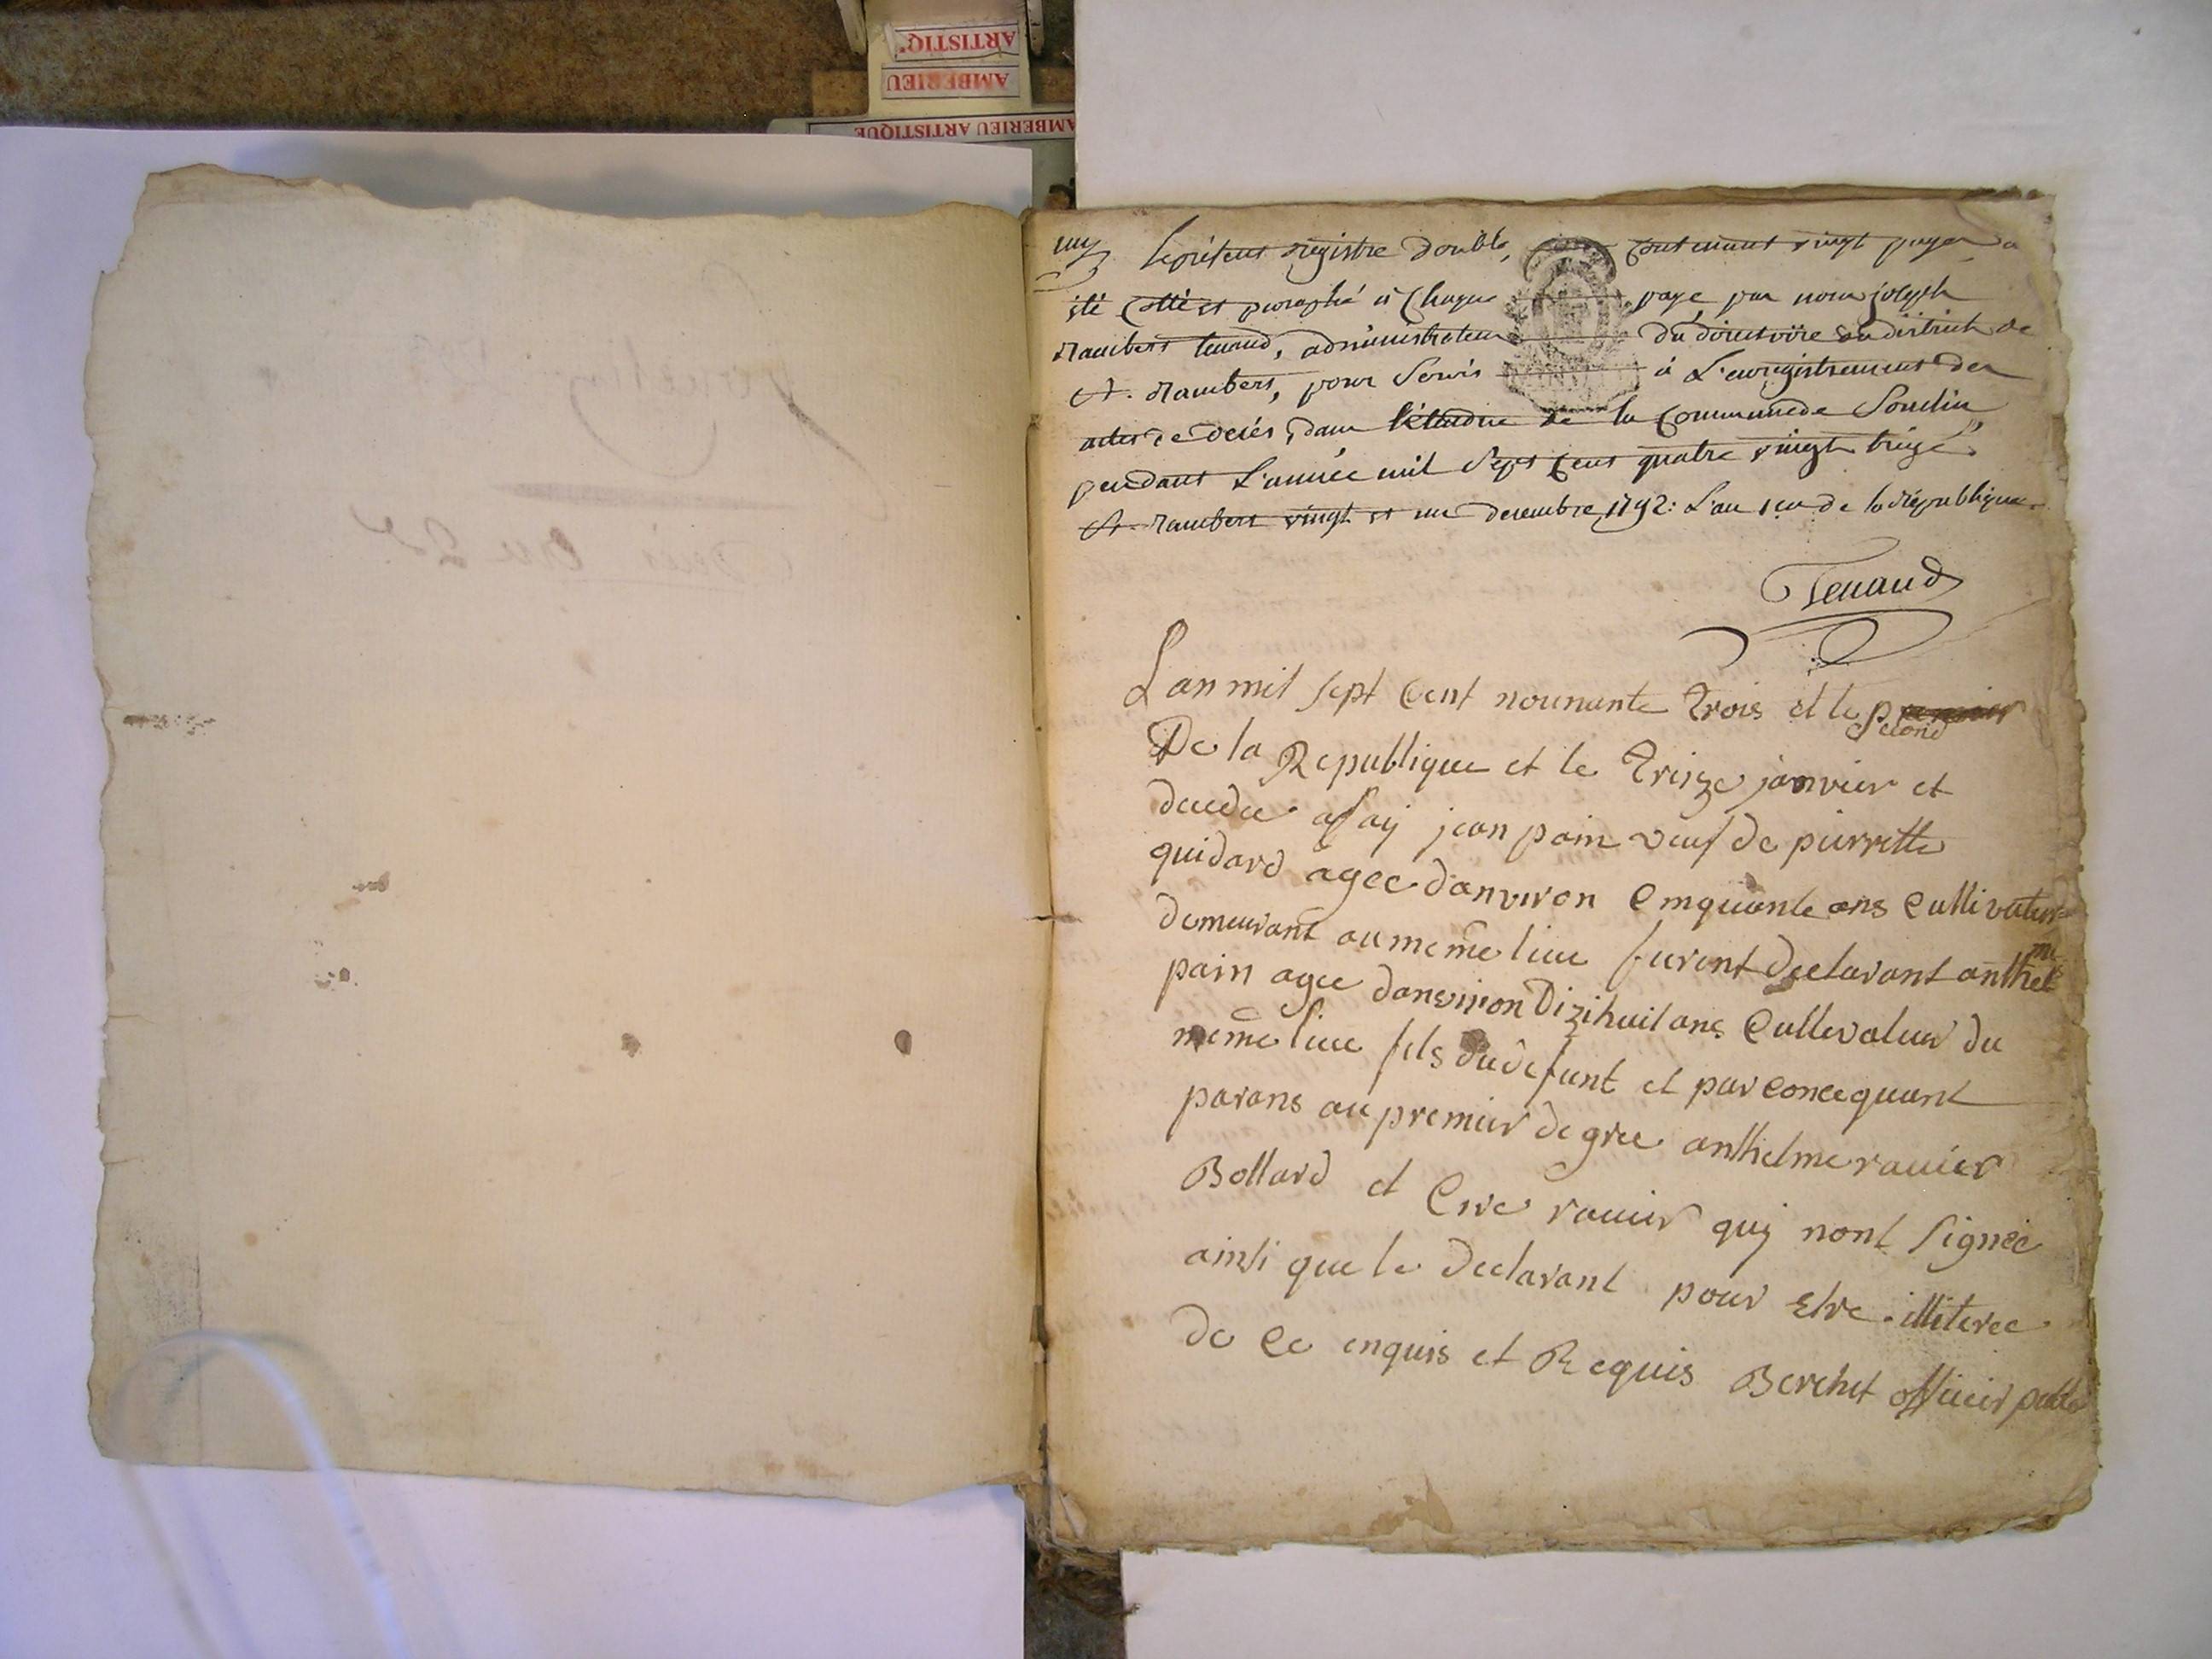 ARTISTIQ
AMBERIEU
AMBERIEU ARTISTIQUE
Le présent registre double, contenant vingt pages a
été cotté et paraphé à Chaque page, par nous joseph
Rambert tenand, administrateur du directoire du district de
St. Rambert, pour servir à L'enregistrement des
actes de décès, dans l'étendue de la Commune de Souclin
pendant L'année mil Sept Cent quatre vingt treize
St. Rambert vingt et un decembre 1792: L'an 1er de la République
Tenand
L an mil sept Cent nounante Trois et le premier
second
De la Republique et le Treize janvier et
decede a say jean pain veuf de pierrette
quidard agee danviron Cinquante ans Cultivateur
demeurant au meme lieu furent declarant anthel
me
pain agee danviron Dizihuit ans Cultevateur du
meme lieu fils du defunt et par concequant
parans au premier degree anthelme ravier
Bottard et ravier quy nont signée
ainsi que le declarant pour Etre illiteree
de Ce enquis et Requis Berchet officier